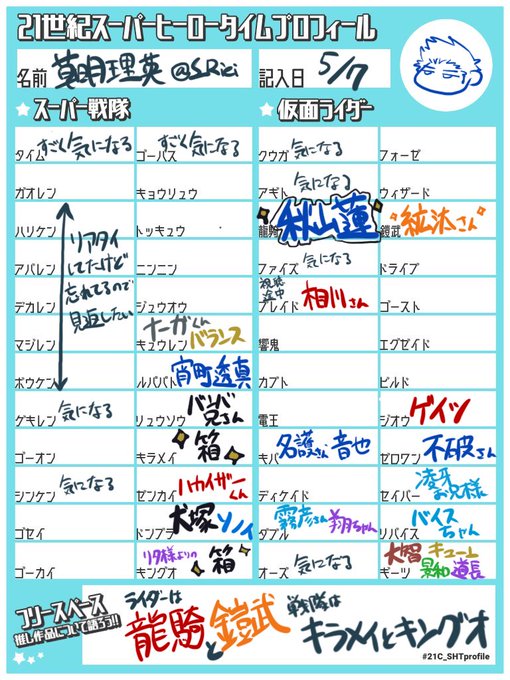 21世紀スーパーヒーロータイムプロフィール
名前 萌明理英 @S_Rici 記入日 5/7
スーパー戦隊 仮面ライダー
タイム すごく気になる ゴーバス すごく気になる クウガ 気になる フォーゼ
ガオレン キョウリュウ アギト 気になる ウィザード
ハリケン トッキュウ 龍騎 秋山蓮 鎧武 "紘汰さん"
アバレン ニンニン ファイズ 気になる ドライブ
デカレン ジュウオウ ブレイド 視聴途中 相川さん ゴースト
マジレン キュウレン ナーガくん バランス 響鬼 エグゼイド
リアタイ
してたけど
忘れてるので
見返したい
ボウケン ルパパト 宵町透真 カブト ビルド
ゲキレン 気になる リュウソウ バンバ兄さん 電王 ジオウ ゲイツ
ゴーオン キラメイ 箱 キバ 名護さん 音也 ゼロワン 不破さん
シンケン 気になる ゼンカイ ハカイザーくん ディケイド セイバー 凌牙お兄様
ゴセイ ドンブラ 犬塚 ソノイ ダブル 霧彦さん 翔ちゃん リバイス バイスちゃん
ゴーカイ キングオ リタ様よりの箱 オーズ 気になる ギーツ 大智 キューム 景和 道長
フリースペース
推し作品について語ろう!!
ライダーは
龍騎と鎧武
戦隊は
キラメイとキングオ
#21C_SHTprofile